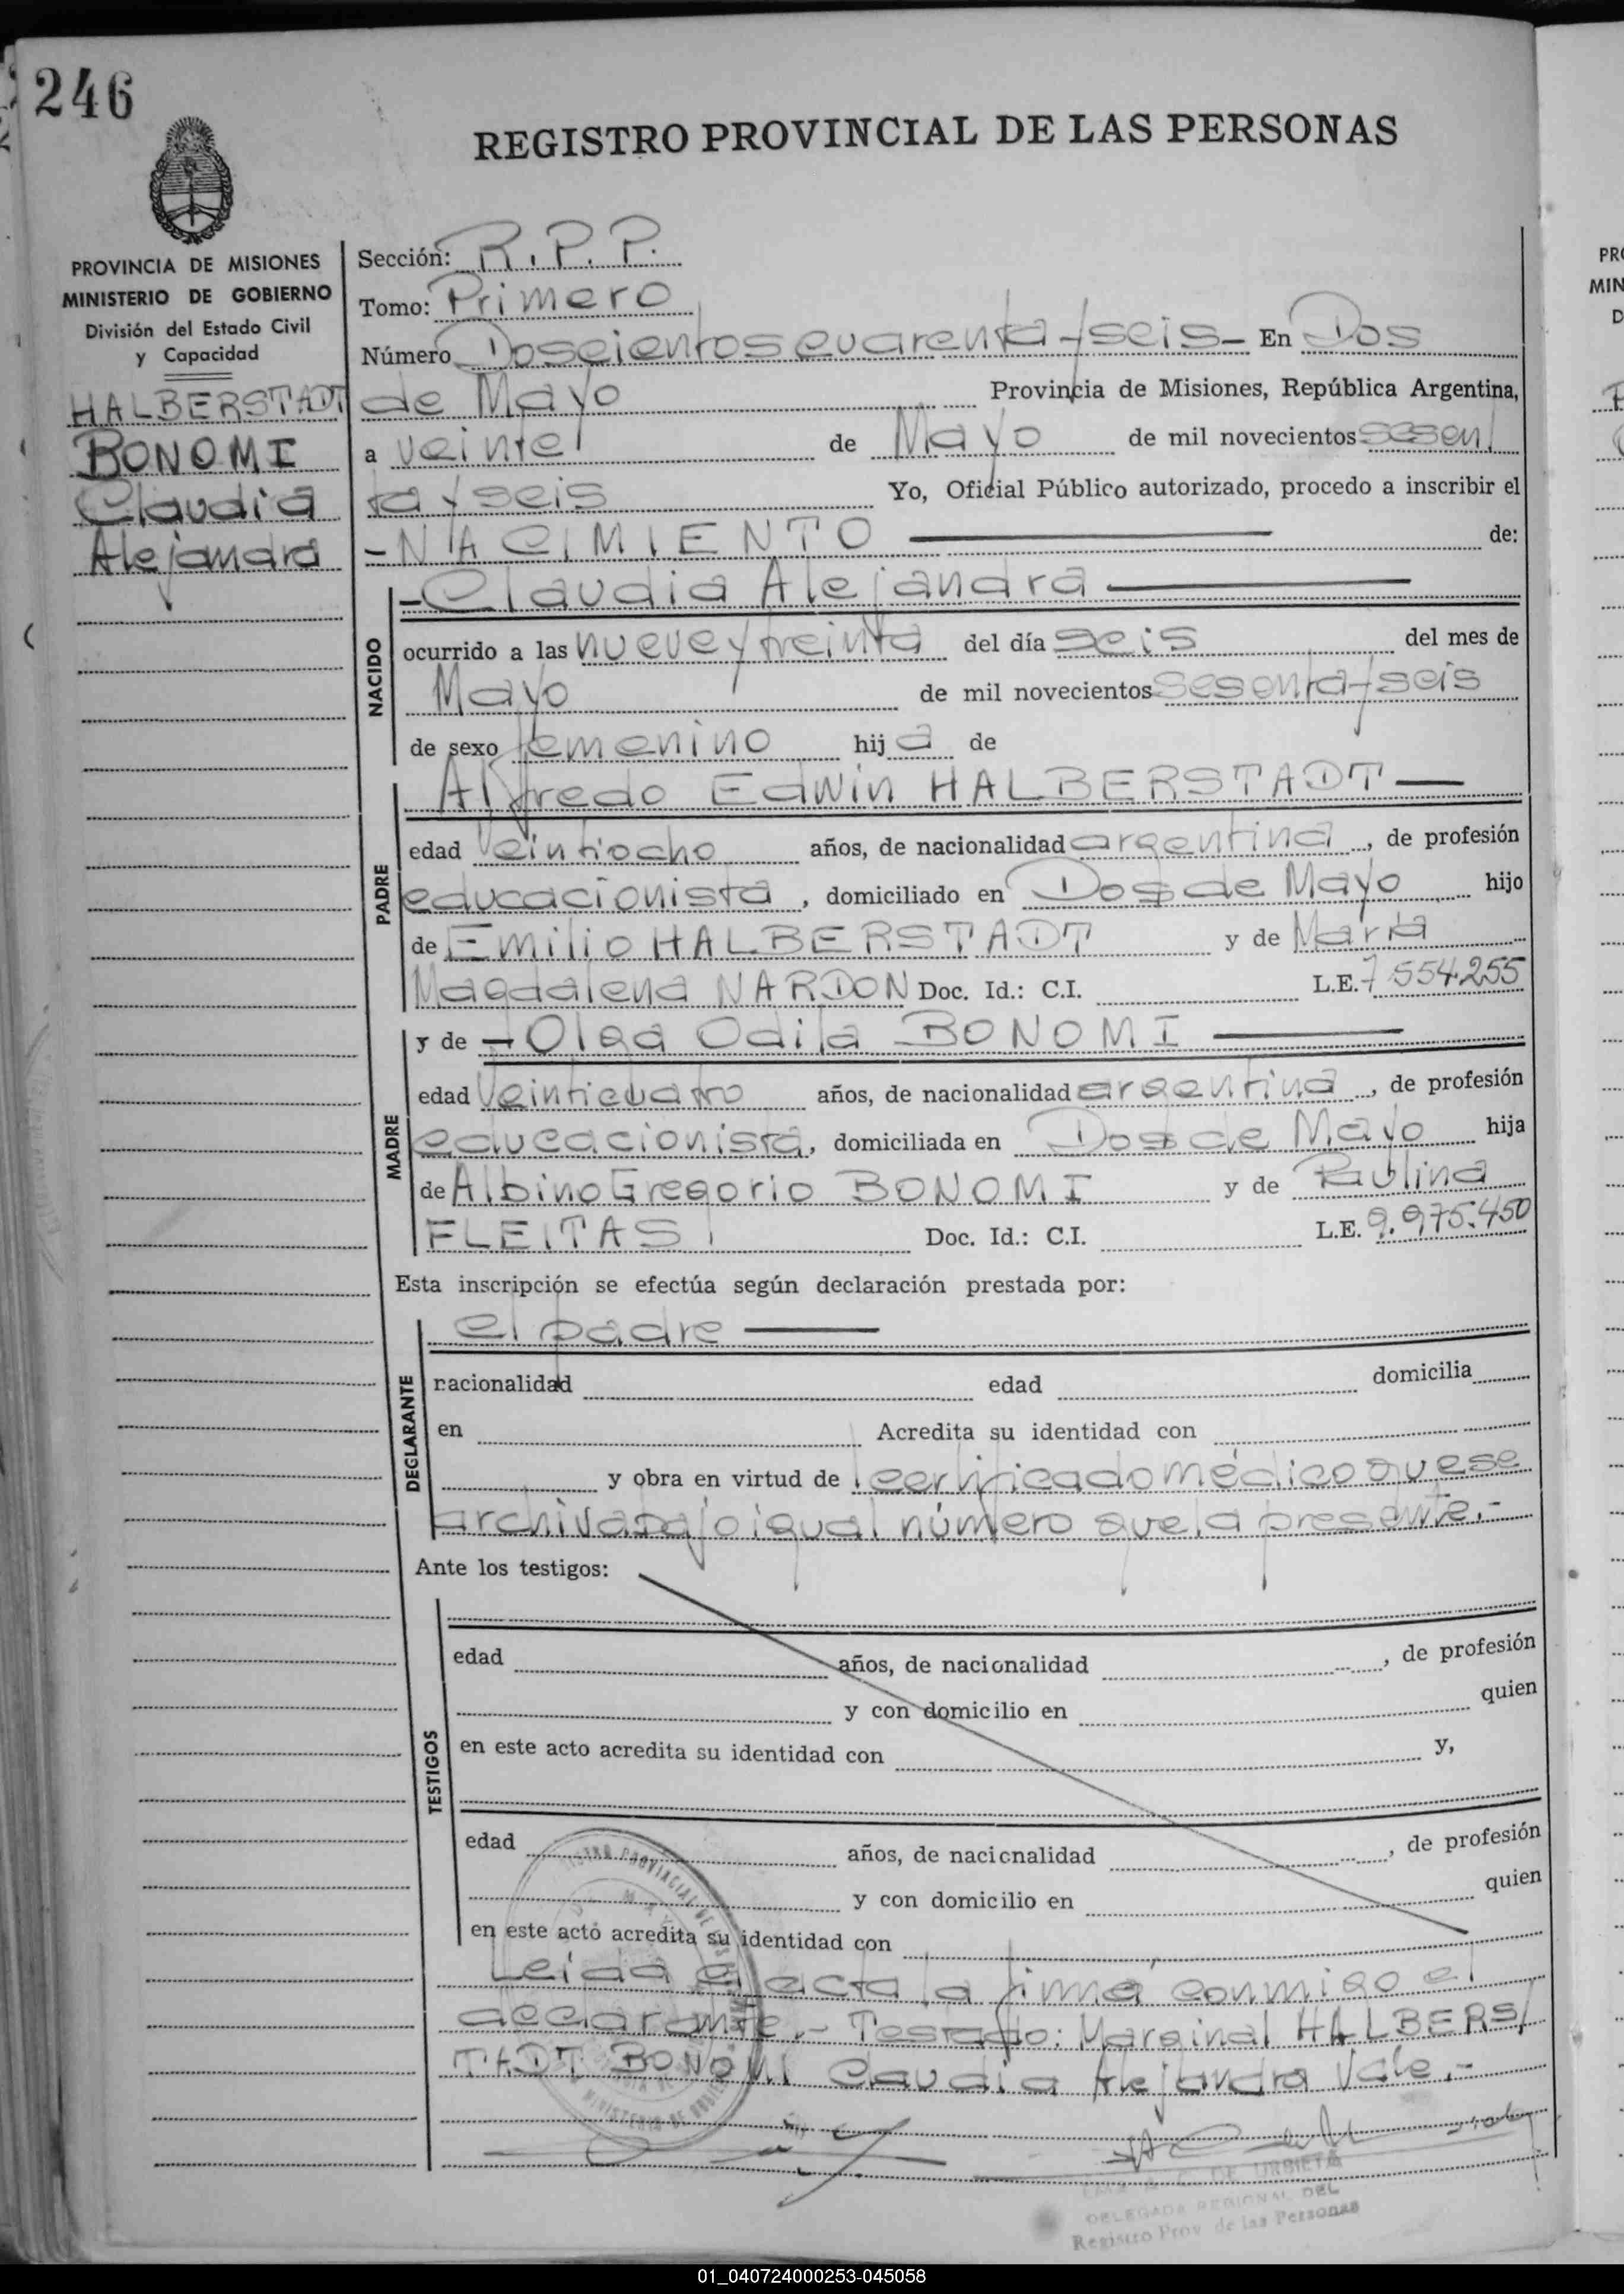 246
REGISTRO PROVINCIAL DE LAS PERSONAS
PROVINCIA DE MISIONES
MINISTERIO DE GOBIERNO
División del Estado Civil
y Capacidad
HALBERSTADT
BONOMI
Claudia
Alejandra
Sección: R.P.P.
Tomo: Primero
Número Doscientos cuarenta y seis - En Dos
de Mayo Provincia de Misiones, República Argentina,
a veinte de Mayo de mil novecientos sesen
ta y seis Yo, Oficial Público autorizado, procedo a inscribir el
- NACIMIENTO — de:
- Claudia Alejandra —
NACIDO
ocurrido a las nueve y treinta del día seis del mes de
Mayo de mil novecientos sesenta y seis
de sexo femenino hija de
Alfredo Edwin HALBERSTADT —
PADRE
edad veintiocho años, de nacionalidad argentina, de profesión
educacionista, domiciliado en Dos de Mayo hijo
de Emilio HALBERSTADT y de María
Magdalena NARDON Doc. Id.: C.I. L.E. 7.554.255
y de - Olga Odila BONOMI —
MADRE
edad veinticuatro años, de nacionalidad argentina, de profesión
educacionista, domiciliada en Dos de Mayo hija
de Albino Gregorio BONOMI y de Paulina
FLEITAS Doc. Id.: C.I. L.E. 9.975.450
Esta inscripción se efectúa según declaración prestada por:
el padre —
DECLARANTE
nacionalidad edad domicilia
en Acredita su identidad con
y obra en virtud de certificado médico que se
archiva bajo igual número que la presente.-
Ante los testigos:
TESTIGOS
edad años, de nacionalidad , de profesión
y con domicilio en quien
en este acto acredita su identidad con y,
edad años, de nacionalidad , de profesión
y con domicilio en quien
en este acto acredita su identidad con
Leída el acta la firma conmigo el
declarante.- Testado: Marginal HALBERS
TADT BONOMI Claudia Alejandra Vale.-
DE URBIETA
DELEGADA REGIONAL DEL
Registro Prov. de las Personas
PRO
MIN
D
01_040724000253-045058